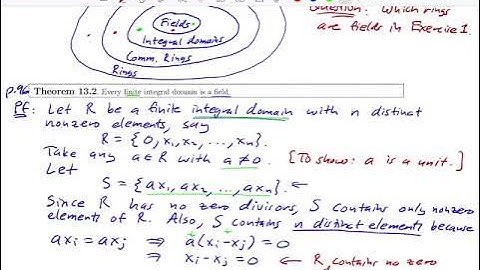 Question: Which rings
are fields in Exercise 1.
Fields
Integral domains
Comm. Rings
Rings
p.96 Theorem 13.2 Every finite integral domain is a field.
Pf: Let R be a finite integral domain with n distinct
nonzero elements, say
R = {0, x₁, x₂, ..., xₙ}.
Take any a∈R with a≠0. [To show: a is a unit.]
Let
S = {ax₁, ax₂, ..., axₙ}. ←
Since R has no zero divisors, S contains only nonzero
elements of R. Also, S contains n distinct elements because
axᵢ = axⱼ ⇒ a(xᵢ-xⱼ) = 0
⇒ xᵢ-xⱼ = 0 ← R contains no zero